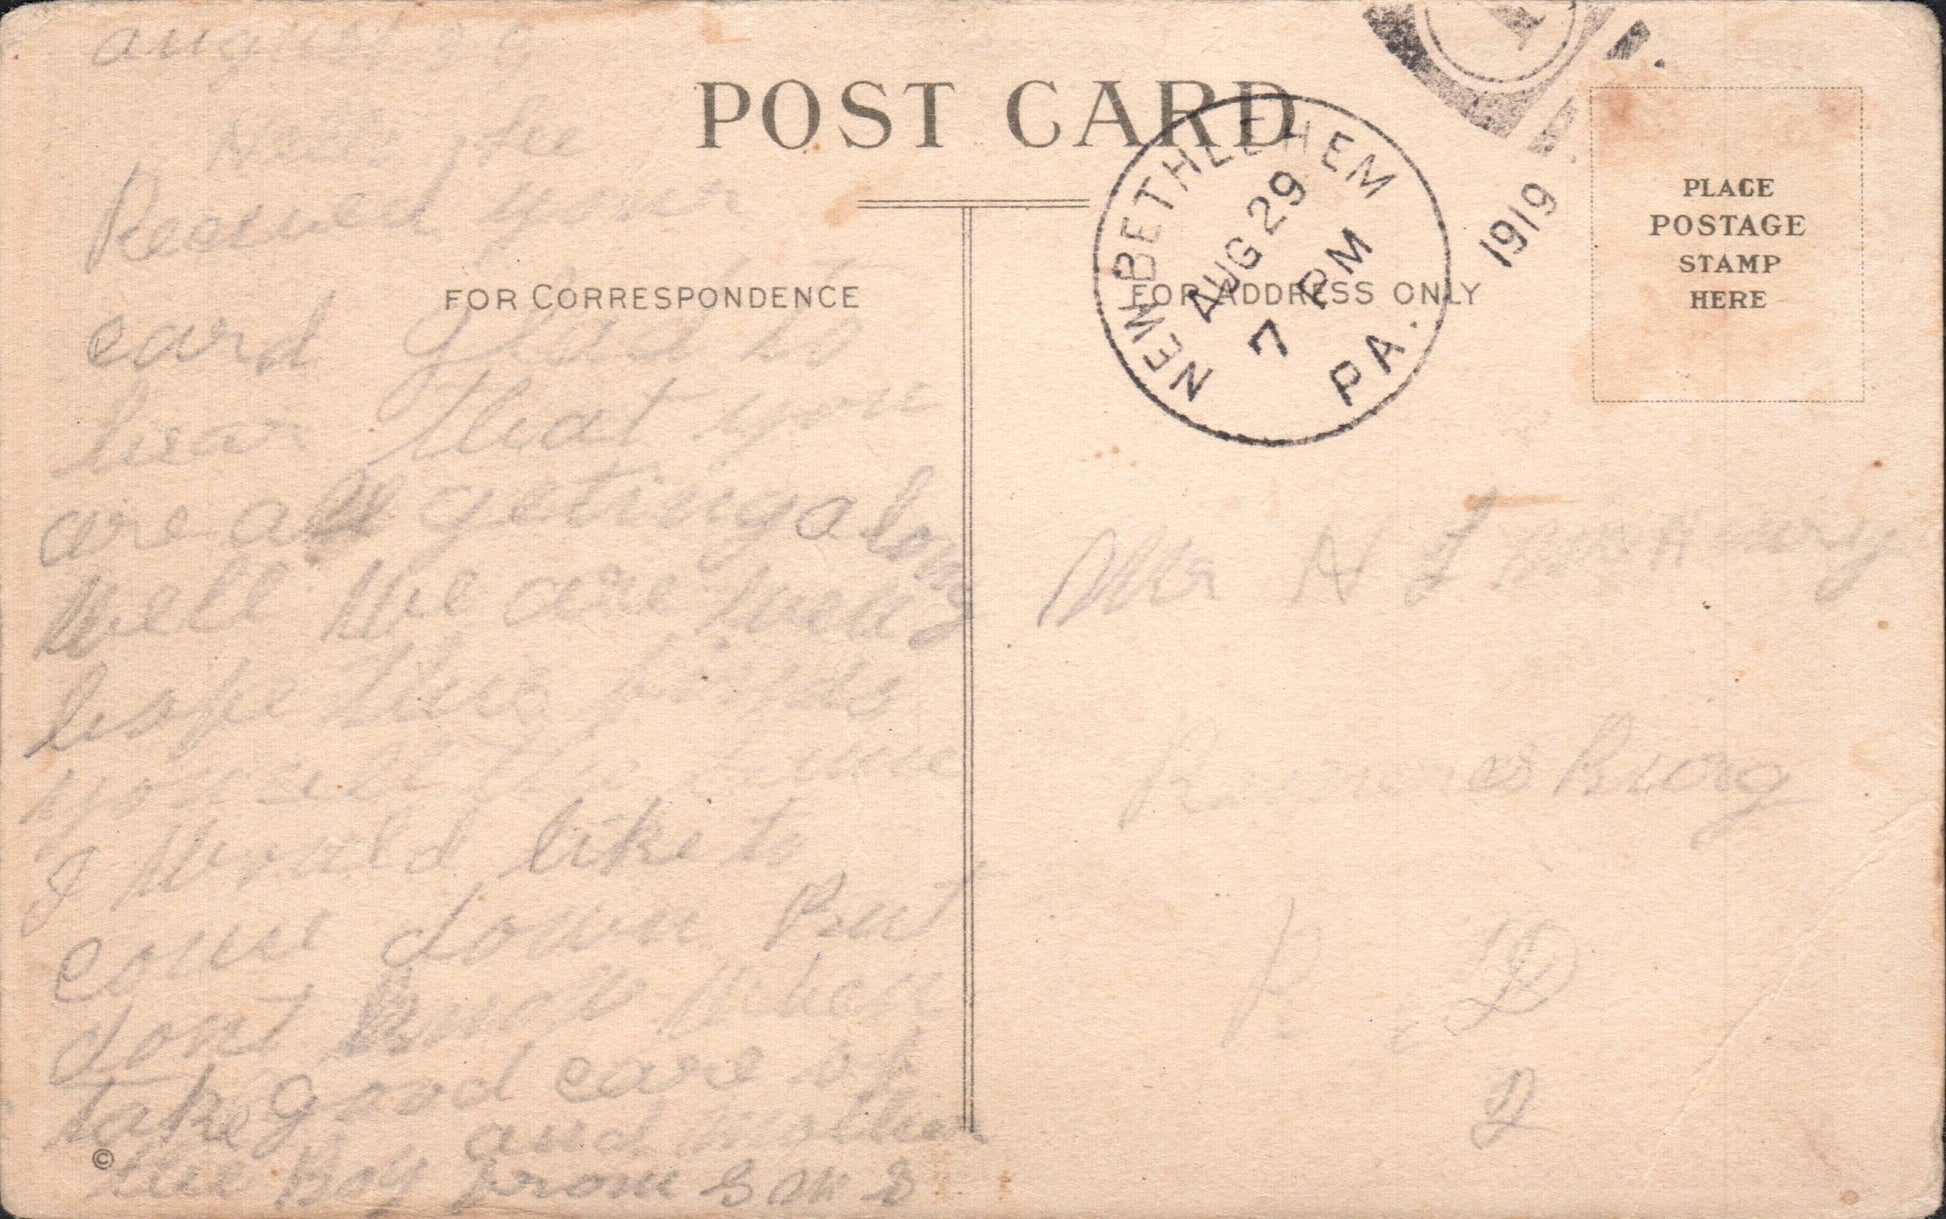 august 26
POST CARD
Received your
FOR CORRESPONDENCE
card Glad to
hear that you
are all geting along
Well We are Well
hope this finds
you all the same
I Would like to
come down But
dont know When
take good care of
the Boy and mother
from G M S
NEW BETHLEHEM PA.
AUG 29
7 PM
1919
FOR ADDRESS ONLY
PLACE
POSTAGE
STAMP
HERE
Mr H
Burg
R D
2
©